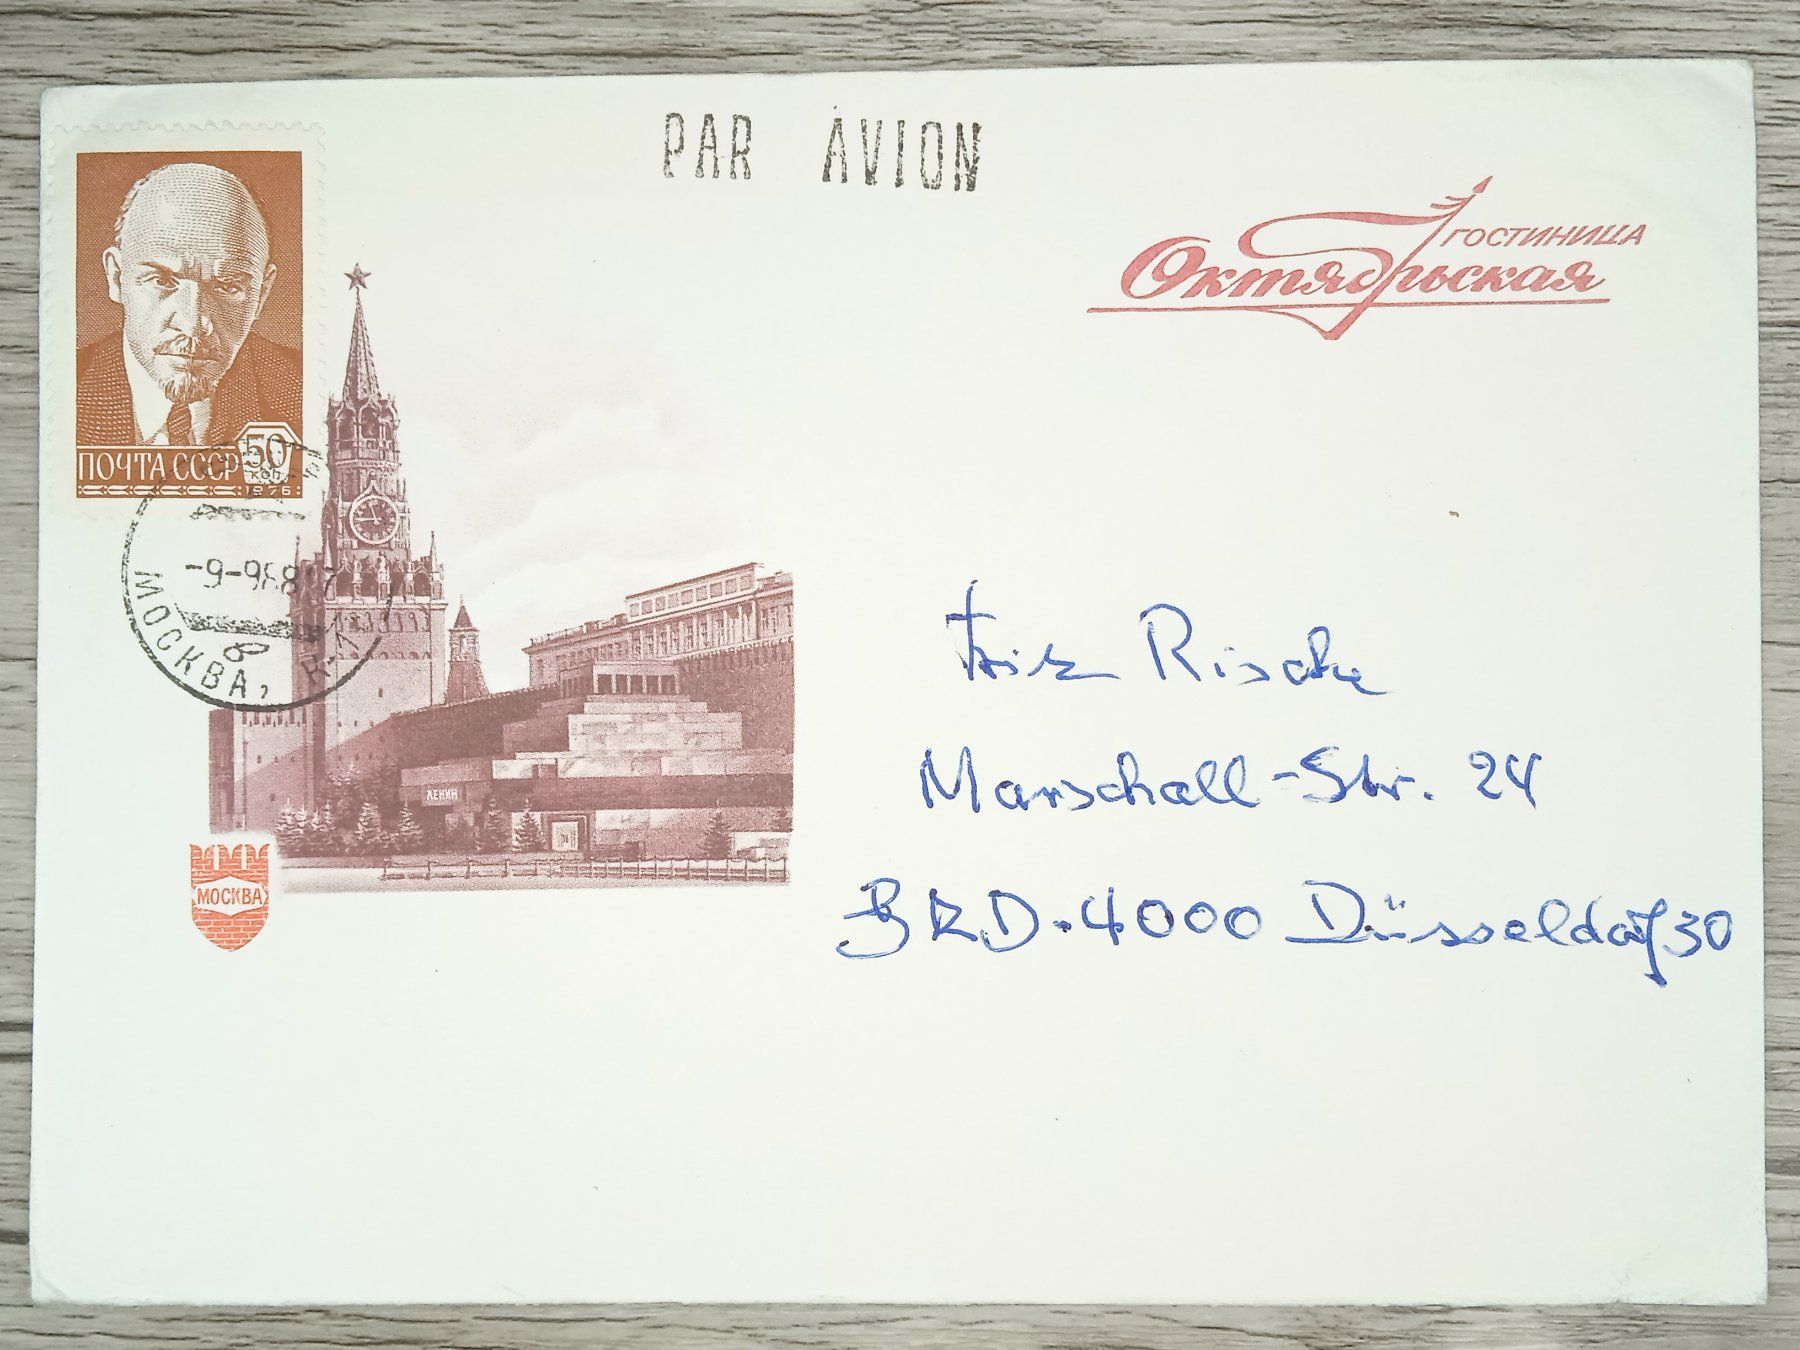 PAR AVION
ГОСТИНИЦА
Октябрьская
50
ПОЧТА СССР КОП
1976
МОСКВА,
8
ЛЕНИН
МОСКВА
Fritz Rische
Marschall-Str. 24
BRD-4000 Düsseldorf 30